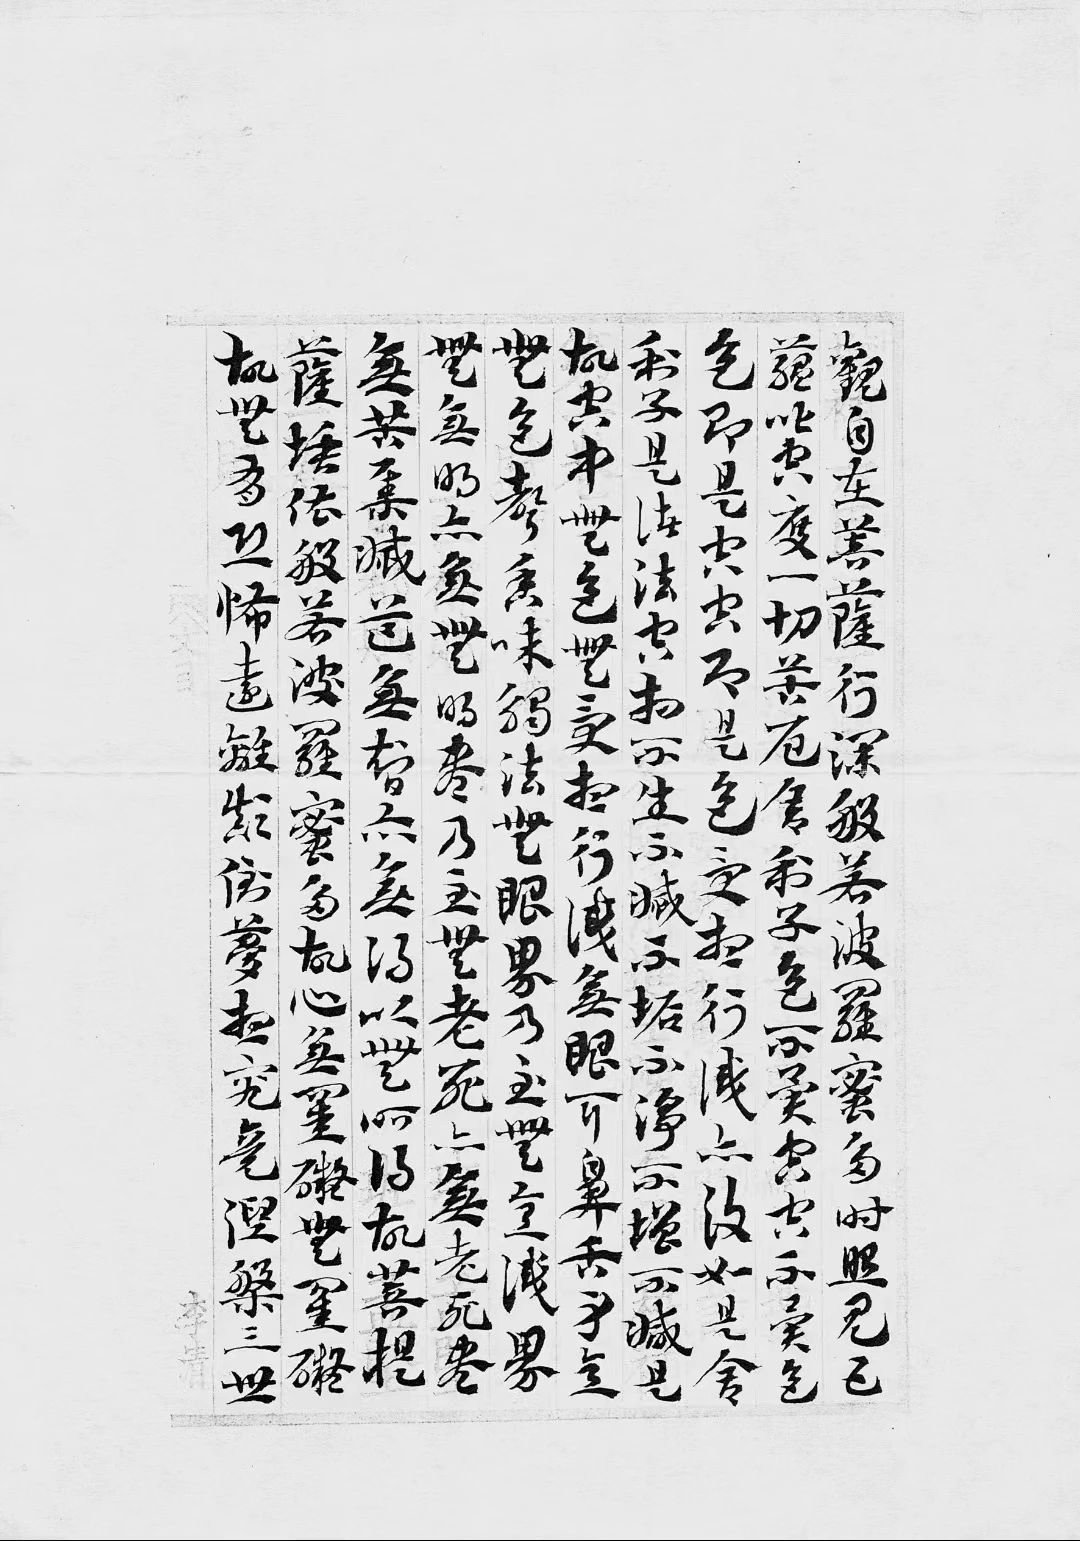 觀自在菩薩行深般若波羅蜜多时照見五
蘊皆空度一切苦厄舍利子色不異空空不異色
色即是空空即是色受想行識亦復如是舍
利子是諸法空相不生不滅不垢不淨不增不減是
故空中無色無受想行識無眼耳鼻舌身意
無色聲香味觸法無眼界乃至無意識界
無無明亦無無明盡乃至無老死亦無老死盡
無苦集滅道無智亦無得以無所得故菩提
薩埵依般若波羅蜜多故心無罣礙無罣礙
故無有恐怖遠離顛倒夢想究竟涅槃三世